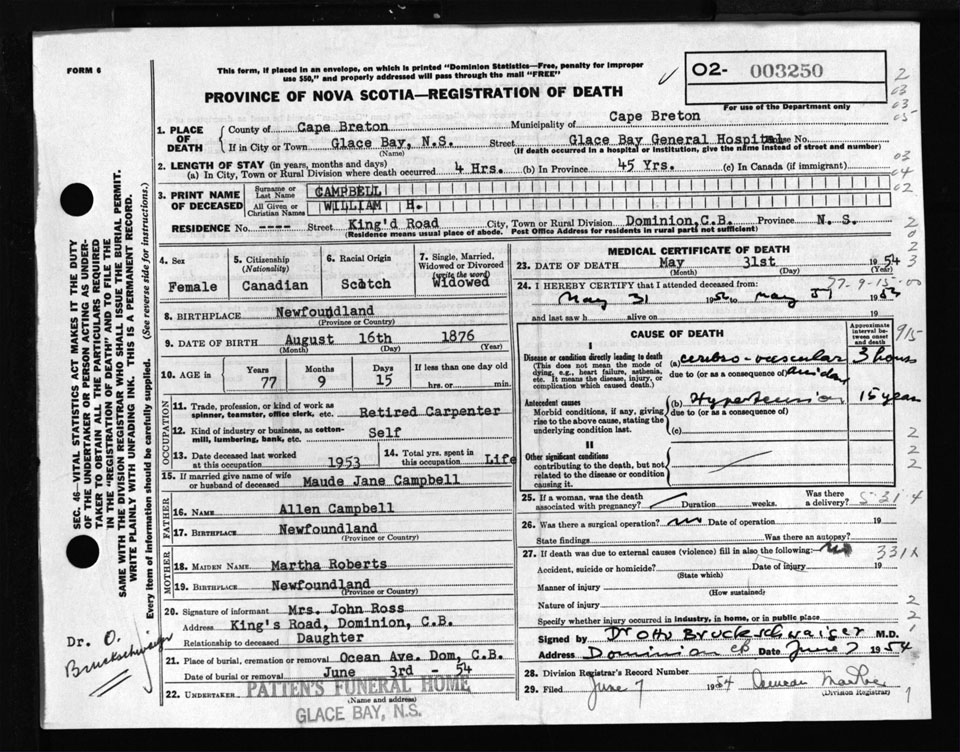 FORM 6
This form, if placed in an envelope, on which is printed "Dominion Statistics—Free, penalty for improper
use $50," and properly addressed will pass through the mail "FREE"
O2- 003250
For use of the Department only
PROVINCE OF NOVA SCOTIA—REGISTRATION OF DEATH
1. PLACE OF DEATH
County of Cape Breton Municipality of Cape Breton
If in City or Town Glace Bay, N.S. Street Glace Bay General Hospital House No.
(Name) (If death occurred in a hospital or institution, give the name instead of street and number)
2. LENGTH OF STAY (in years, months and days)
(a) In City, Town or Rural Division where death occurred 4 Hrs. (b) In Province 45 Yrs. (c) In Canada (if immigrant)
3. PRINT NAME OF DECEASED
Surname or Last Name CAMPBELL
All Given or Christian Names WILLIAM H.
RESIDENCE No. ---- Street King'd Road City, Town or Rural Division Dominion,C.B. Province N. S.
(Residence means usual place of abode. Post Office Address for residents in rural parts not sufficient)
4. Sex Female
5. Citizenship (Nationality) Canadian
6. Racial Origin Scotch
7. Single, Married, Widowed or Divorced (write the word) Widowed
8. BIRTHPLACE Newfoundland
(Province or Country)
9. DATE OF BIRTH August 16th 1876
(Month) (Day) (Year)
10. AGE in Years Months Days If less than one day old
77 9 15 hrs. or min.
OCCUPATION
11. Trade, profession, or kind of work as
spinner, teamster, office clerk, etc. Retired Carpenter
12. Kind of industry or business, as cotton-
mill, lumbering, bank, etc. Self
13. Date deceased last worked
at this occupation 1953
14. Total yrs. spent in
this occupation Life
15. If married give name of wife
or husband of deceased Maude Jane Campbell
FATHER
16. NAME Allen Campbell
17. BIRTHPLACE Newfoundland
(Province or Country)
MOTHER
18. MAIDEN NAME Martha Roberts
19. BIRTHPLACE Newfoundland
(Province or Country)
20. Signature of informant Mrs. John Ross
Address King's Road, Dominion, C.B.
Relationship to deceased Daughter
21. Place of burial, cremation or removal Ocean Ave. Dom, C.B.
Date of burial or removal June 3rd - 54
22. UNDERTAKER PATTEN'S FUNERAL HOME
(Name and address)
GLACE BAY, N.S.
MEDICAL CERTIFICATE OF DEATH
23. DATE OF DEATH May 31st 1954
(Month) (Day) (Year)
24. I HEREBY CERTIFY that I attended deceased from: 77-9-15-00
May 31 19 May 31 19
and last saw h alive on 19
CAUSE OF DEATH
Approximate interval between onset and death
915
I
Disease or condition directly leading to death (a) cerebro-vascular 3 hours
(This does not mean the mode of
dying, e.g., heart failure, asthenia,
etc. It means the disease, injury, or
complication which caused death.)
due to (or as a consequence of)
Antecedent causes (b) Hypertension 15 years
Morbid conditions, if any, giving
rise to the above cause, stating the
underlying condition last.
due to (or as a consequence of)
(c)
II
Other significant conditions
contributing to the death, but not
related to the disease or condition
causing it.
25. If a woman, was the death
associated with pregnancy? Duration weeks. Was there
a delivery?
26. Was there a surgical operation? no Date of operation 19
State findings Was there an autopsy?
27. If death was due to external causes (violence) fill in also the following: no 331X
Accident, suicide or homicide? Date of injury 19
(State which)
Manner of injury
(How sustained)
Nature of injury
Specify whether injury occurred in industry, in home, or in public place
Signed by Dr Otto Bruckschwaiger M.D.
Address Dominion CB Date June 7 1954
28. Division Registrar's Record Number
29. Filed June 7 1954
(Division Registrar)
SEC. 46—VITAL STATISTICS ACT MAKES IT THE DUTY
OF THE UNDERTAKER OR PERSON ACTING AS UNDER-
TAKER TO OBTAIN ALL THE PARTICULARS REQUIRED
IN THE "REGISTRATION OF DEATH" AND TO FILE THE
SAME WITH THE DIVISION REGISTRAR WHO SHALL ISSUE THE BURIAL PERMIT.
WRITE PLAINLY WITH UNFADING INK. THIS IS A PERMANENT RECORD.
Every item of information should be carefully supplied. (See reverse side for instructions.)
Dr. O.
Bruckschwaiger